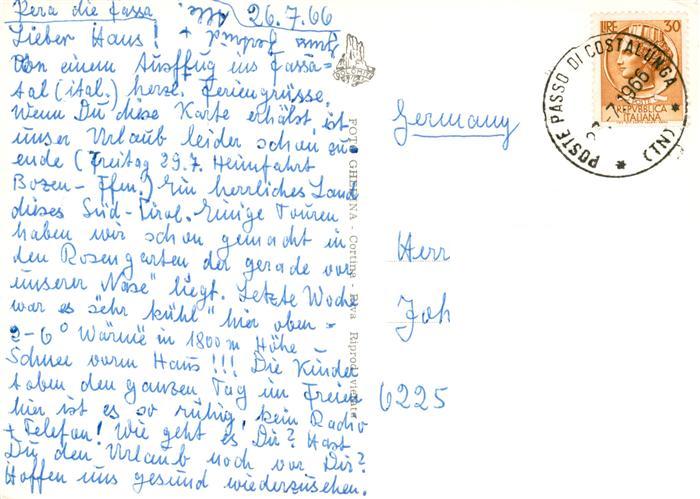 Pera die Fassa 26.7.66
Lieber Hans!
Von einem Ausflug ins Fassa-
tal (ital.) herzl. Feriengrüsse.
Wenn Du diese Karte erhälst, ist
unser Urlaub leider schon zu
ende (Freitag 29.7. Heimfahrt
Bozen - Ffm.) Ein herrliches Land
dieses Süd-Tirol. Einige Touren
haben wir schon gemacht in
den Rosengarten der gerade vor
unserer "Nase" liegt. Letzte Woche
war es "sehr kühl" hier oben -
2-6° Wärme in 1800 m Höhe -
Schnee vorm Haus!!! Die Kinder
toben den ganzen Tag im Freien
hier ist es so ruhig, kein Radio
+ Telefon! Wie geht es Dir? Hast
Du den Urlaub noch vor Dir?
Hoffen uns gesund wiederzusehen.
Alle
FOTO GHEDINA - Cortina - Riprod. vietata
LIRE 30
REPUBBLICA
ITALIANA
POSTE PASSO DI COSTALUNGA * (TN) *
7.1966
Germany
Herr
Joh
6225